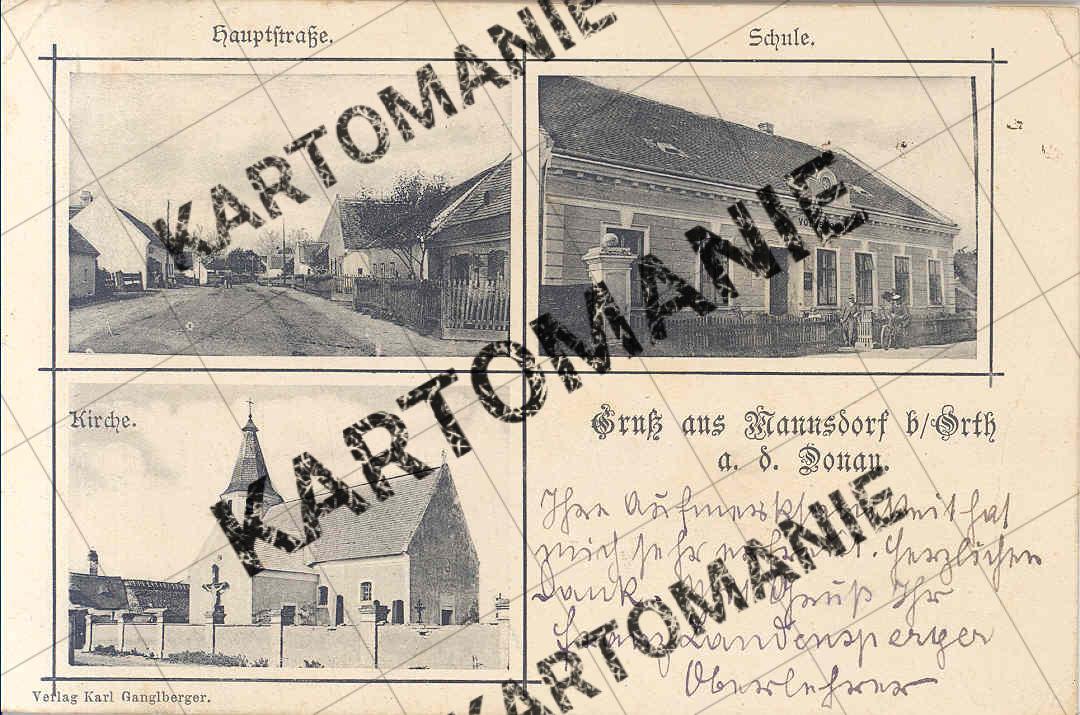 Hauptstraße.
Schule.
KARTOMANIE
KARTOMANIE
Kirche.
Gruß aus Mannsdorf b/Orth
a. d. Donau.
Ihre Aufmerksamkeit hat
mich sehr erfreut. Herzlichen
Dank. Gruß Ihr
Franz Landensperger
Oberlehrer
KARTOMANIE
Verlag Karl Ganglberger.